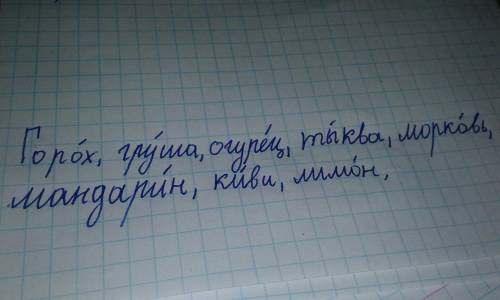 Горо́х, гру́ша, огуре́ц, ты́ква, морко́вь,
мандари́н, ки́ви, лимо́н,